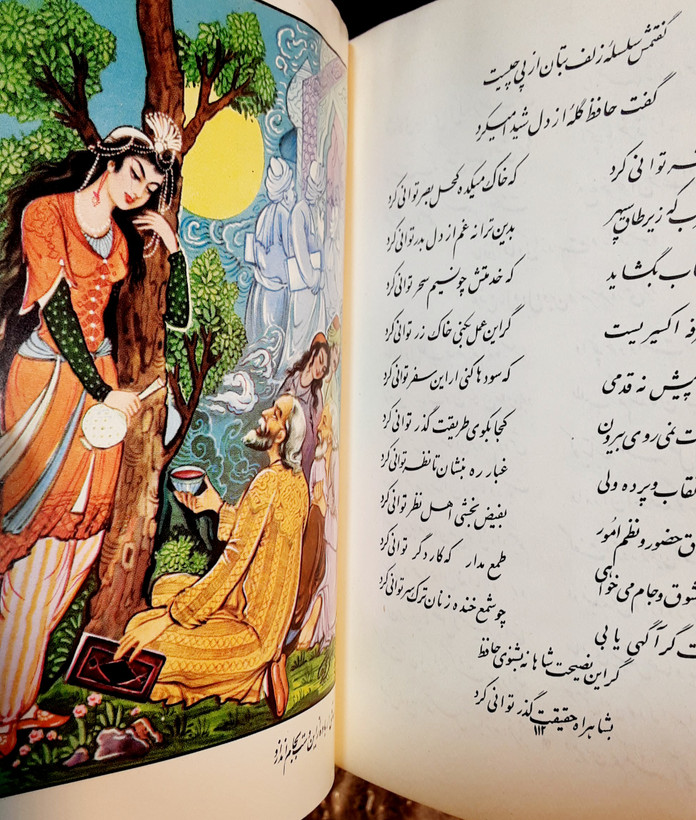 گفتمش سلسلهٔ زلف بتان از پی چیست
گفت حافظ گلهٔ از دل شیدا میکرد
توانی کرد که خاک میکده کحل بصر توانی کرد
که زیر طاق سپهر بدین ترانه غم از دل بدر توانی کرد
بگشاید که خدمتش چو نسیم سحر توانی کرد
اکسیریست گر این عمل بکنی خاک زر توانی کرد
پیش نه قدمی که سودها کنی ار این سفر توانی کرد
نمی روی بیرون کجا بکوی طریقت گذر توانی کرد
نقاب و پرده ولی غبار ره بنشان تا نظر توانی کرد
حضور و نظم امور بفیض بخشی اهل نظر توانی کرد
و جام می خواهی طمع مدار که کار دگر توانی کرد
گر آگهی یابی چو شمع خنده زنان ترک سر توانی کرد
گر این نصیحت شاهانه بشنوی حافظ
بشاهراه حقیقت گذر توانی کرد
۱۱۲